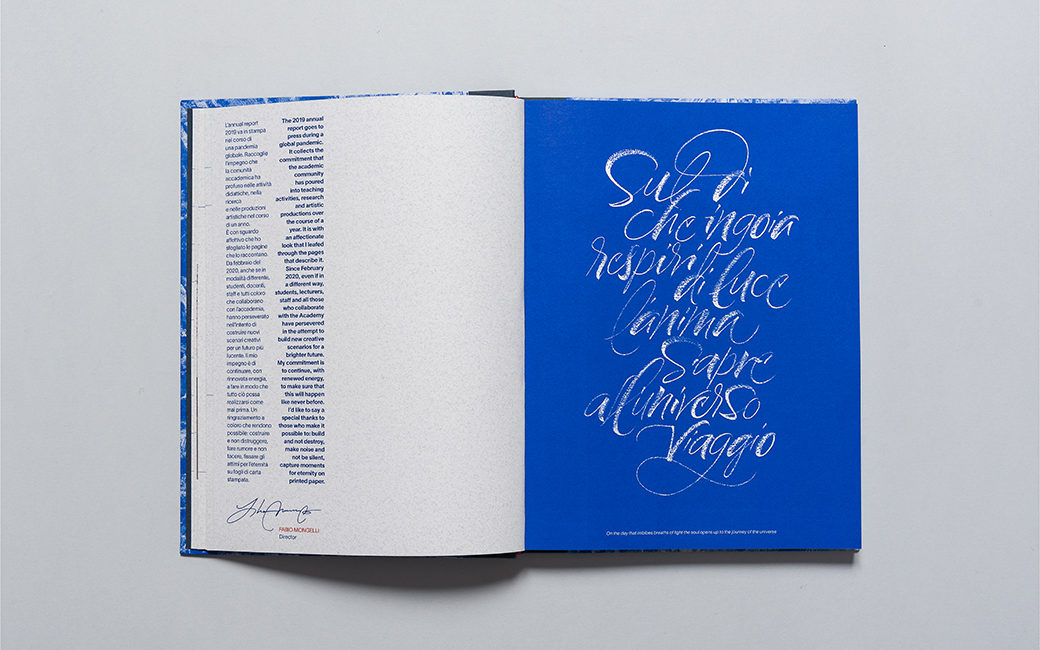 L'annual report
2019 va in stampa
nel corso di
una pandemia
globale. Raccoglie
l'impegno che
la comunità
accademica ha
profuso nelle attività
didattiche, nella
ricerca
e nelle produzioni
artistiche nel corso
di un anno.
È con sguardo
affettivo che ho
sfogliato le pagine
che lo raccontano.
Da febbraio del
2020, anche se in
modalità differente,
studenti, docenti,
staff e tutti coloro
che collaborano
con l'accademia,
hanno perseverato
nell'intento di
costruire nuovi
scenari creativi
per un futuro più
lucente. Il mio
impegno è di
continuare, con
rinnovata energia,
a fare in modo che
tutto ciò possa
realizzarsi come
mai prima. Un
ringraziamento a
coloro che rendono
possibile: costruire
e non distruggere,
fare rumore e non
tacere, fissare gli
attimi per l'eternità
su fogli di carta
stampata.
The 2019 annual
report goes to
press during a
global pandemic.
It collects the
commitment that
the academic
community
has poured
into teaching
activities, research
and artistic
productions over
the course of a
year. It is with
an affectionate
look that I leafed
through the pages
that describe it.
Since February
2020, even if in
a different way,
students, lecturers,
staff and all those
who collaborate
with the Academy
have persevered
in the attempt to
build new creative
scenarios for a
brighter future.
My commitment is
to continue, with
renewed energy,
to make sure that
this will happen
like never before.
I'd like to say a
special thanks to
those who make it
possible to: build
and not destroy,
make noise and
not be silent,
capture moments
for eternity on
printed paper.
FABIO MONGELLI
Director
Sul Di
che ingoia
respiri
di luce
l'anima
s'apre
all'universo
Viaggio
On the day that imbibes breaths of light the soul opens up to the journey of the universe